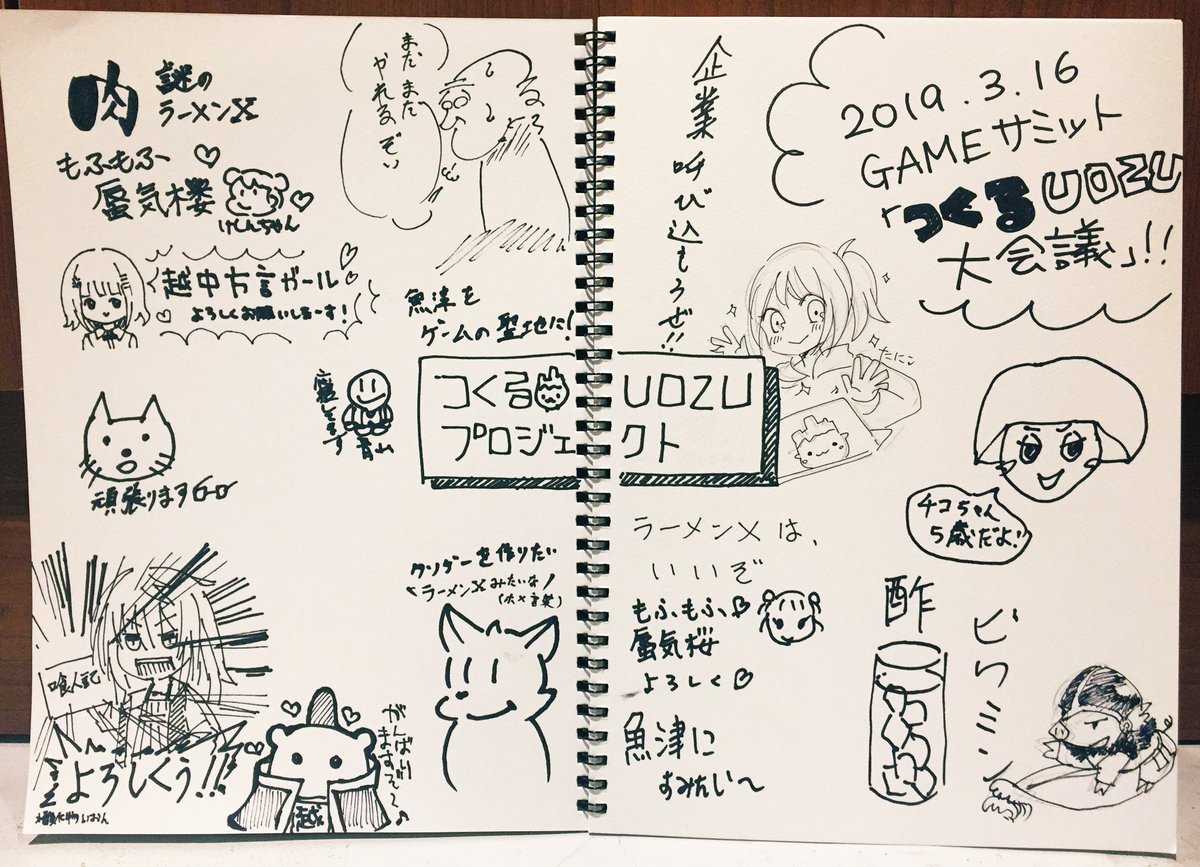 肉
謎の
ラーメンX
まだまだ
やれるぞい
もふもふ〜
蜃気楼
けしんちゃん
越中方言ガール
よろしくお願いしまーす!
魚津を
ゲームの聖地に!
青山
頑張ります
クソゲーを作りたい
ラーメンXみたいな!
喰人記
よろしくぅ!!
がんばり
ますぞ〜♪
越
2019.3.16
GAMEサミット
「つくるUOZU
大会議」!!
企業呼び込もうぜ!!
たにこ
つくる UOZU
プロジェクト
チコちゃん
5歳だよ!
ラーメンXは、
いいぞ
もふもふ
蜃気桜
よろしく
酢
ピクミン
魚津に
すみたい〜